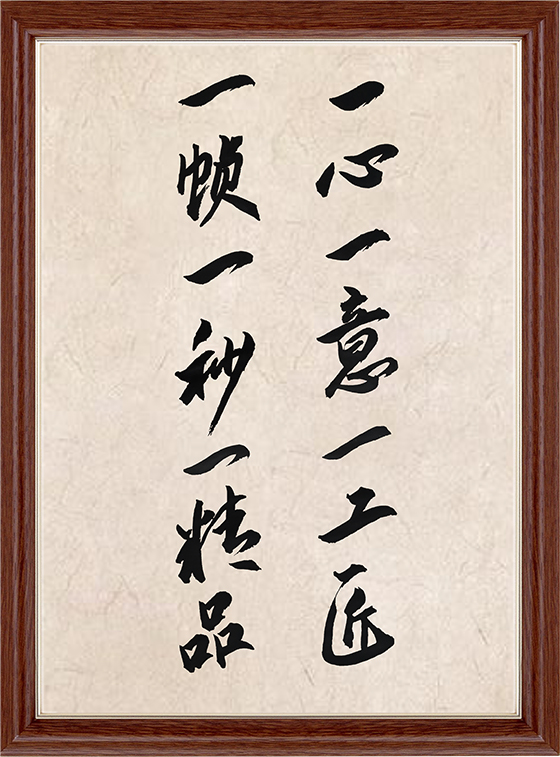 一心一意一工匠
一帧一秒一精品